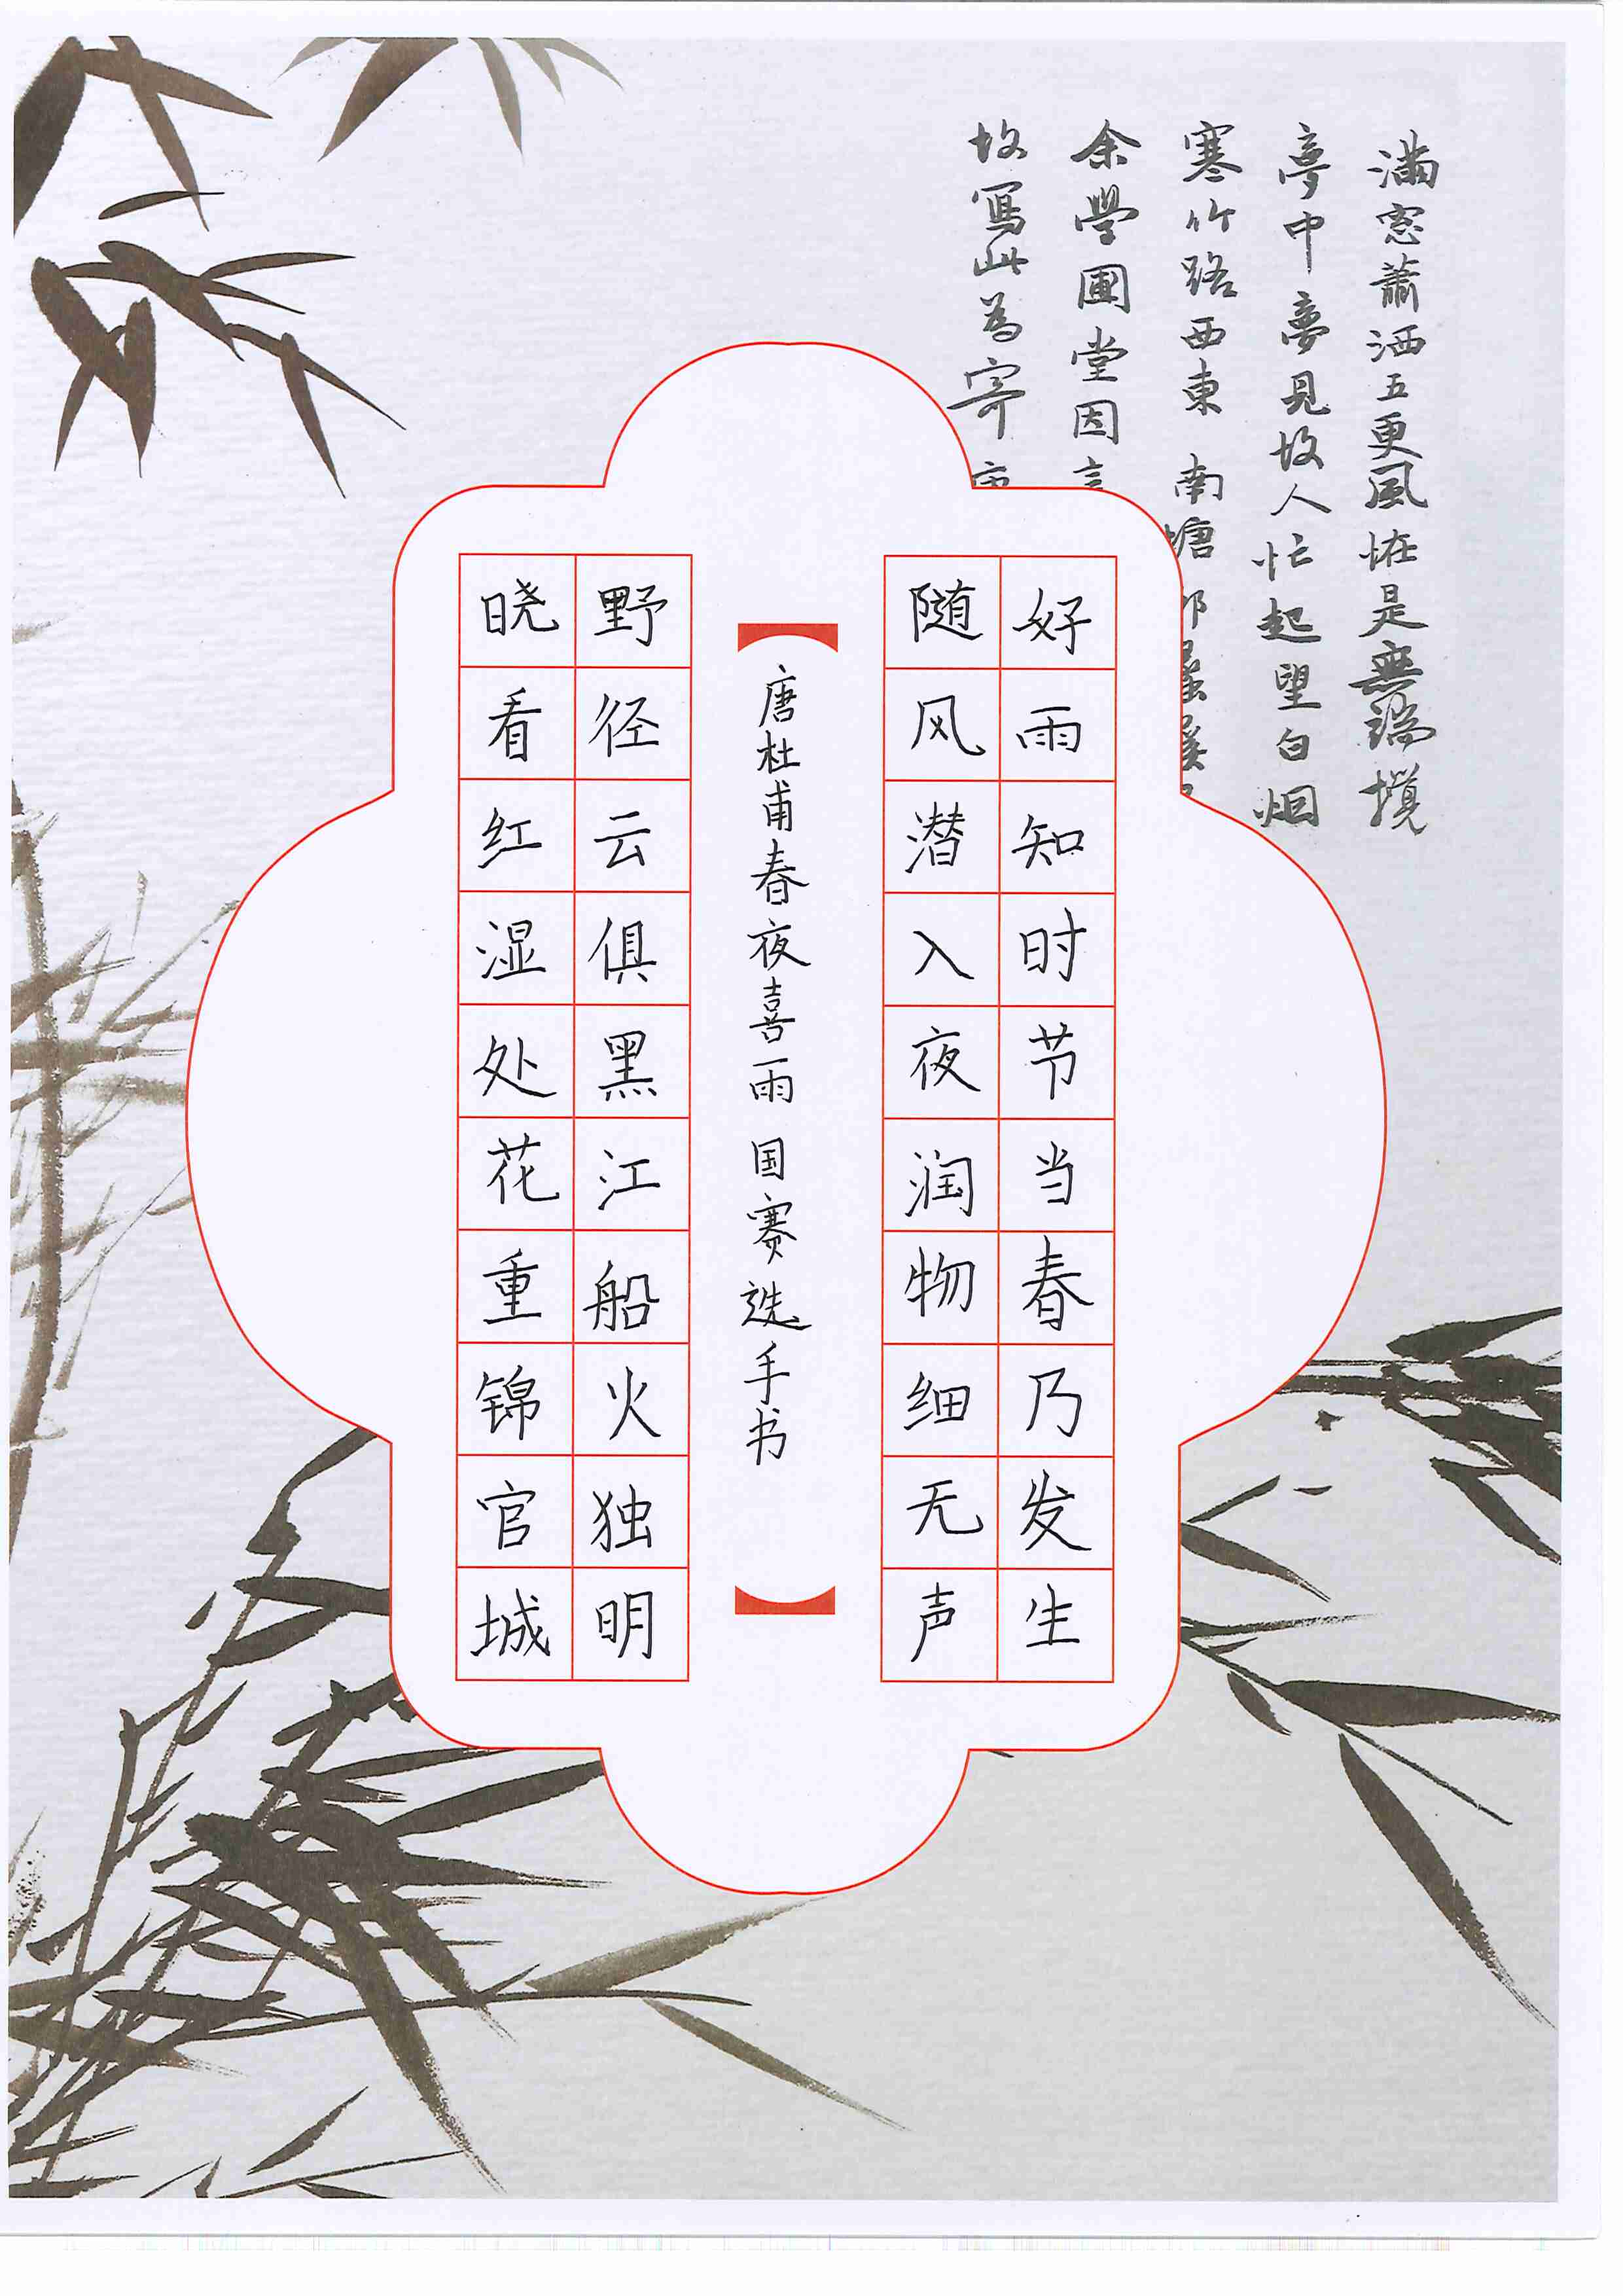 滿窓蕭洒五更風恠是無端攪
夢中夢見故人忙起望白烟
寒竹路西東 南塘
余學圃堂因
故寫此為寄
好雨知时节当春乃发生
随风潜入夜润物细无声
唐杜甫春夜喜雨 国赛选手书
野径云俱黑江船火独明
晓看红湿处花重锦官城